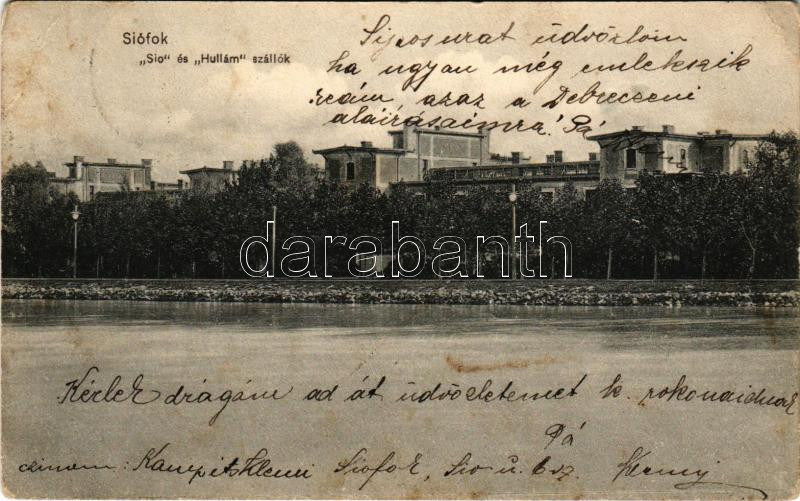 Siófok
„Sio" és „Hullám" szállók
üdvözlom
ha ugyan még emlékszik
reám, azaz a Debreczeni
aláirásaimra! Pá
darabanth
Kérlek drágám ad át üdvözletemet k. rokonaidnak
Pá
czimem: Kampits Klemi Siofok, Sio u. 6 sz.